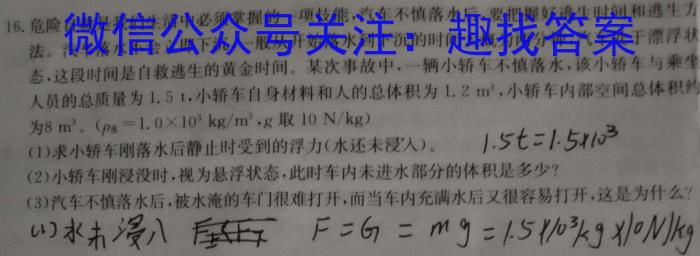 16. 危险 必须掌握的一项技能,汽车不慎落水后,要把握好逃生时间和逃生方
微信公众号关注:趣找答案
法。 于漂浮状
态,这段时间是自救逃生的黄金时间。某次事故中,一辆小轿车不慎落水,该小轿车与乘坐
人员的总质量为 1.5 t,小轿车自身材料和人的总体积为 1.2 m³,小轿车内部空间总体积约
为8 m³。(ρ水=1.0×10³ kg/m³,g 取 10 N/kg)
(1)求小轿车刚落水后静止时受到的浮力(水还未浸入)。 1.5t=1.5×10³
(2)小轿车刚浸没时,视为悬浮状态,此时车内未进水部分的体积是多少?
(3)汽车不慎落水后,被水淹的车门很难打开,而当车内充满水后又很容易打开,这是为什么?
(1)水未浸入 F=G=mg=1.5×10³kg×10N/kg